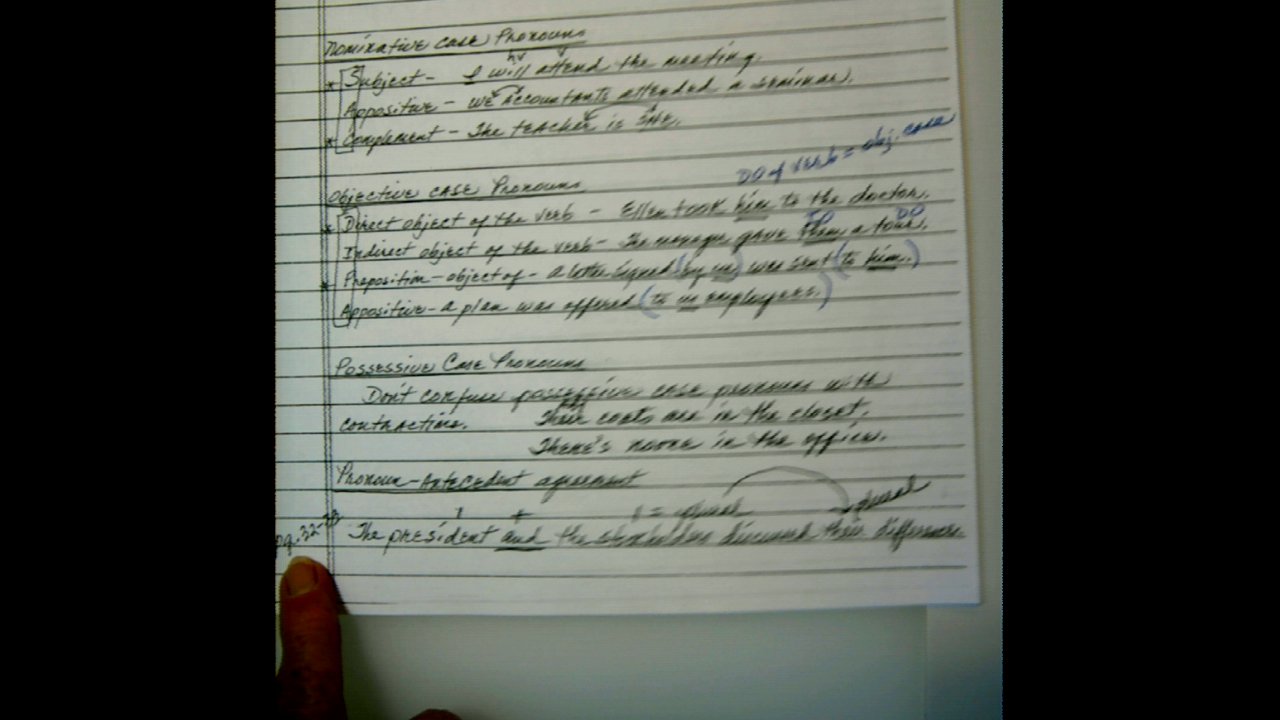 Nominative Case Pronouns
hv v
* Subject - I will attend the meeting.
Appositive - we accountants attended a seminar.
* Complement - The teacher is she.
DO of verb = obj. case
Objective Case Pronouns
* Direct object of the verb - Ellen took him to the doctor.
IO DO
Indirect object of the verb - The manager gave them a tour.
* Preposition - object of - a letter signed (by us) was sent (to him.)
Appositive - a plan was offered (to us employees.)
Possessive Case Pronouns
Don't confuse possessive case pronouns with
contractions. Their coats are in the closet.
There's no one in the office.
Pronoun-Antecedent agreement
1 + 1 = plural plural
pg. 32- The president and the discussed their differences.